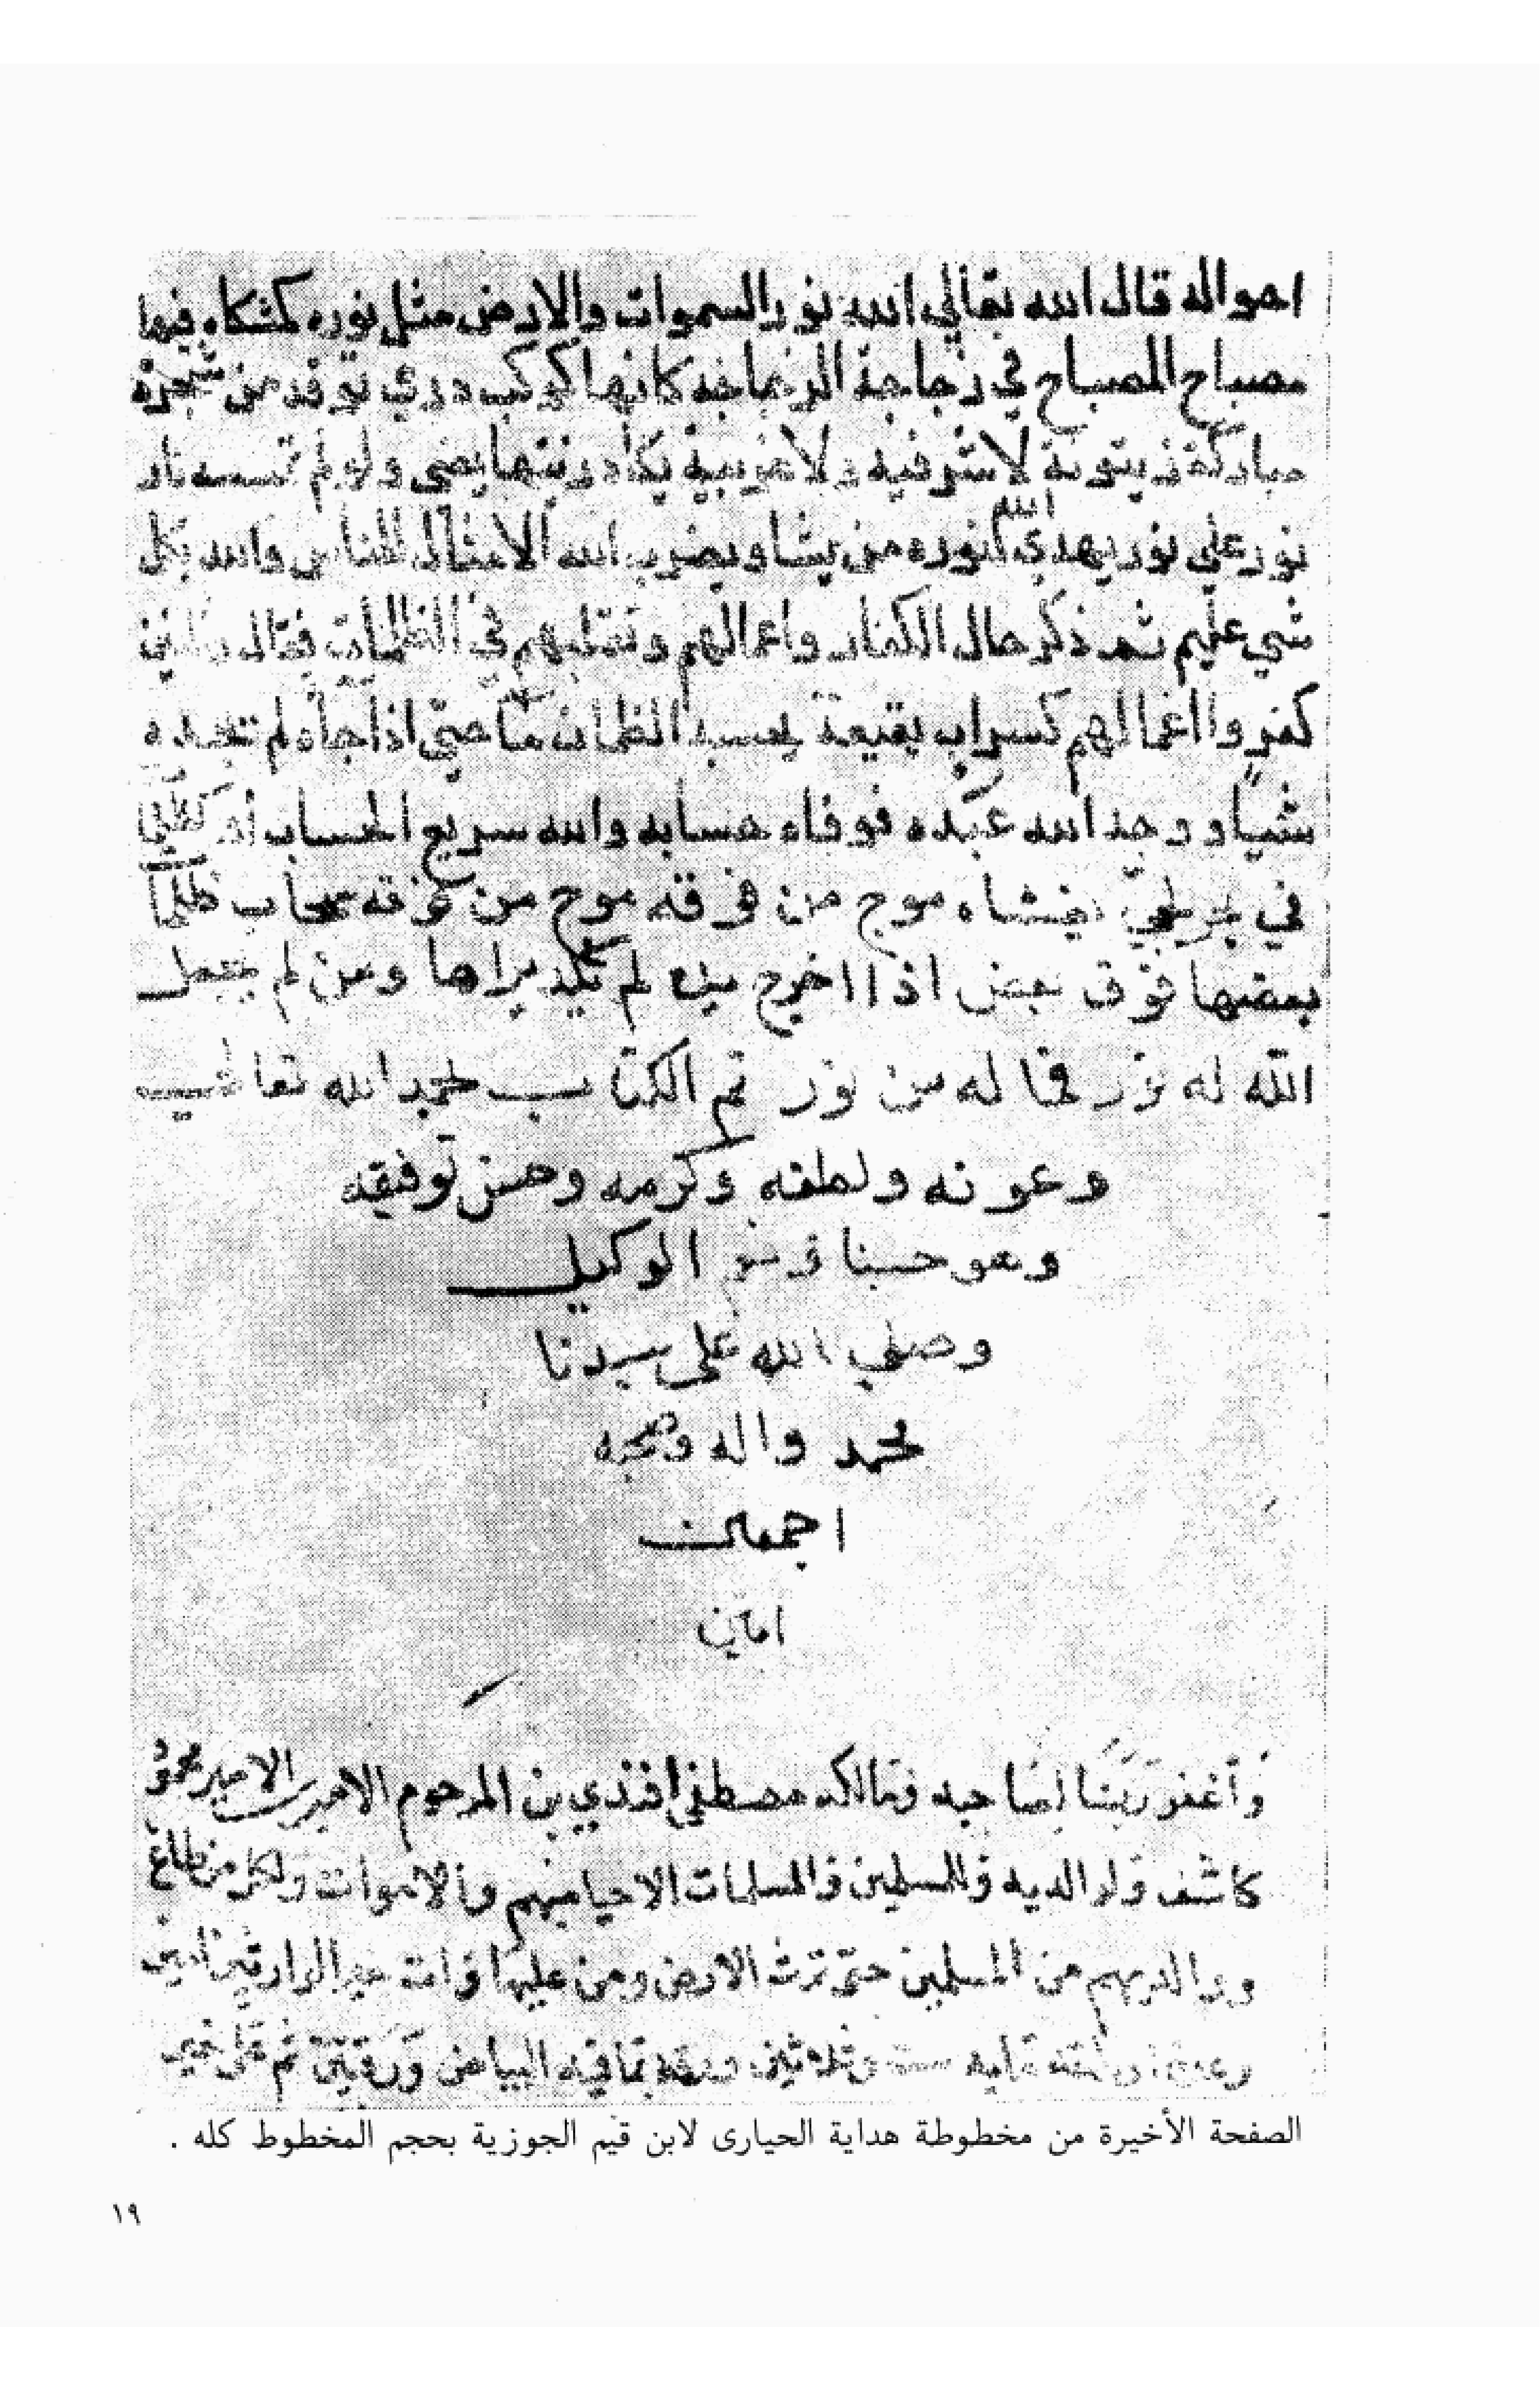 احواله قال الله تعالي الله نور السموات والارض مثل نوره كمشكاه فيها
مصباح المصباح في زجاجة الزجاجه كانها كوكب دري توقد من شجرة
مباركة زيتونة لا شرقيه ولا غربية يكاد زيتها يضي ولو لم تمسسه نار
نور علي نور يهدي الله لنوره من يشاو يضرب الله الامثال للناس والله بكل
شي عليم ثم ذكر حال الكفار واعمالهم وتقلبهم في الظلمات فقال والذين
كفروا اعمالهم كسراب بقيعة يحسبه الظمان ما حتي اذا جاه لم تجده
شيا ووجد الله عنده فوفاه حسابه والله سريع الحساب او كظلما
في بحر لجي يغشاه موج من فوقه موج من فوقه سحاب ظلما
بعضها فوق بعض اذا اخرج يده لم يكد يراها ومن لم يجعل
الله له نور فما له من نور تم الكتاب بحمد الله تعا
وعونه ولطفه وكرمه وحسن توفيقه
وهو حسبنا ونعم الوكيل
وصلي الله على سيدنا
محمد واله وصحبه
اجمعين
امين
وأغفر ربنا لصاحبه ومالكه مصطفي افندي بن المرحوم الامير الامير محمود
كاشف ولوالديه وللمسلمين والمسلمات الاحيا منهم والاموات ولكل من طالع
ووالديهم من المسلمين حتى ترث الارض ومن عليها وانت خير الوارثين امين
ثلاثين ورقه بما فيه البياض ورقتين ثم على خير
الصفحة الأخيرة من مخطوطة هداية الحيارى لابن قيم الجوزية بحجم المخطوط كله .
١٩